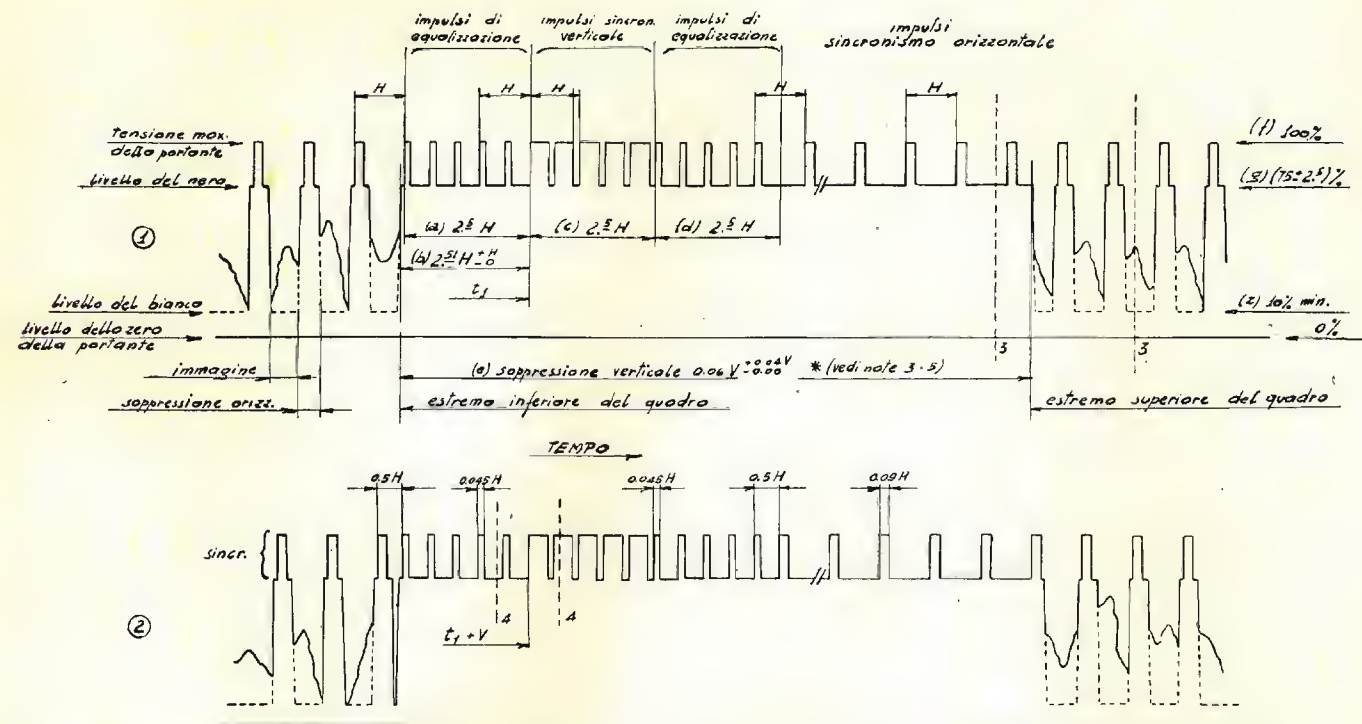 impulsi di
equalizzazione
impulsi sincron.
verticale
impulsi di
equalizzazione
impulsi
sincronismo orizzontale
H
H
H
H
H
tensione max.
della portante
livello del nero
(f) 100%
(g) (75±2.5)%
1
(a) 2.5 H
(c) 2.5 H
(d) 2.5 H
(b) 2.51 H +H -0
t1
livello del bianco
(z) 10% min.
livello dello zero
della portante
0%
3
3
immagine
(e) soppressione verticale 0.06 V +0.04V -0.00 * (vedi note 3-5)
soppressione orizz.
estremo inferiore del quadro
estremo superiore del quadro
TEMPO
0.5 H
0.045 H
0.045 H
0.5 H
0.09 H
sincr.
2
4
4
t1 + V